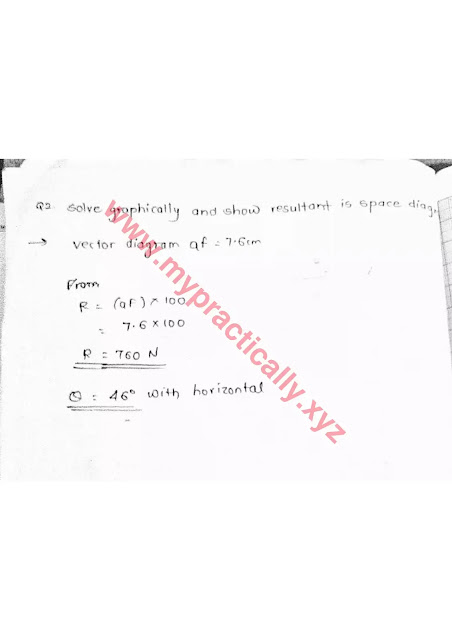 Q2 solve graphically and show resultant is space diag.
→ vector diagram af = 7.6cm
From
R = (aF) × 100
= 7.6 × 100
R = 760 N
θ = 46° with horizontal
www.mypractically.xyz